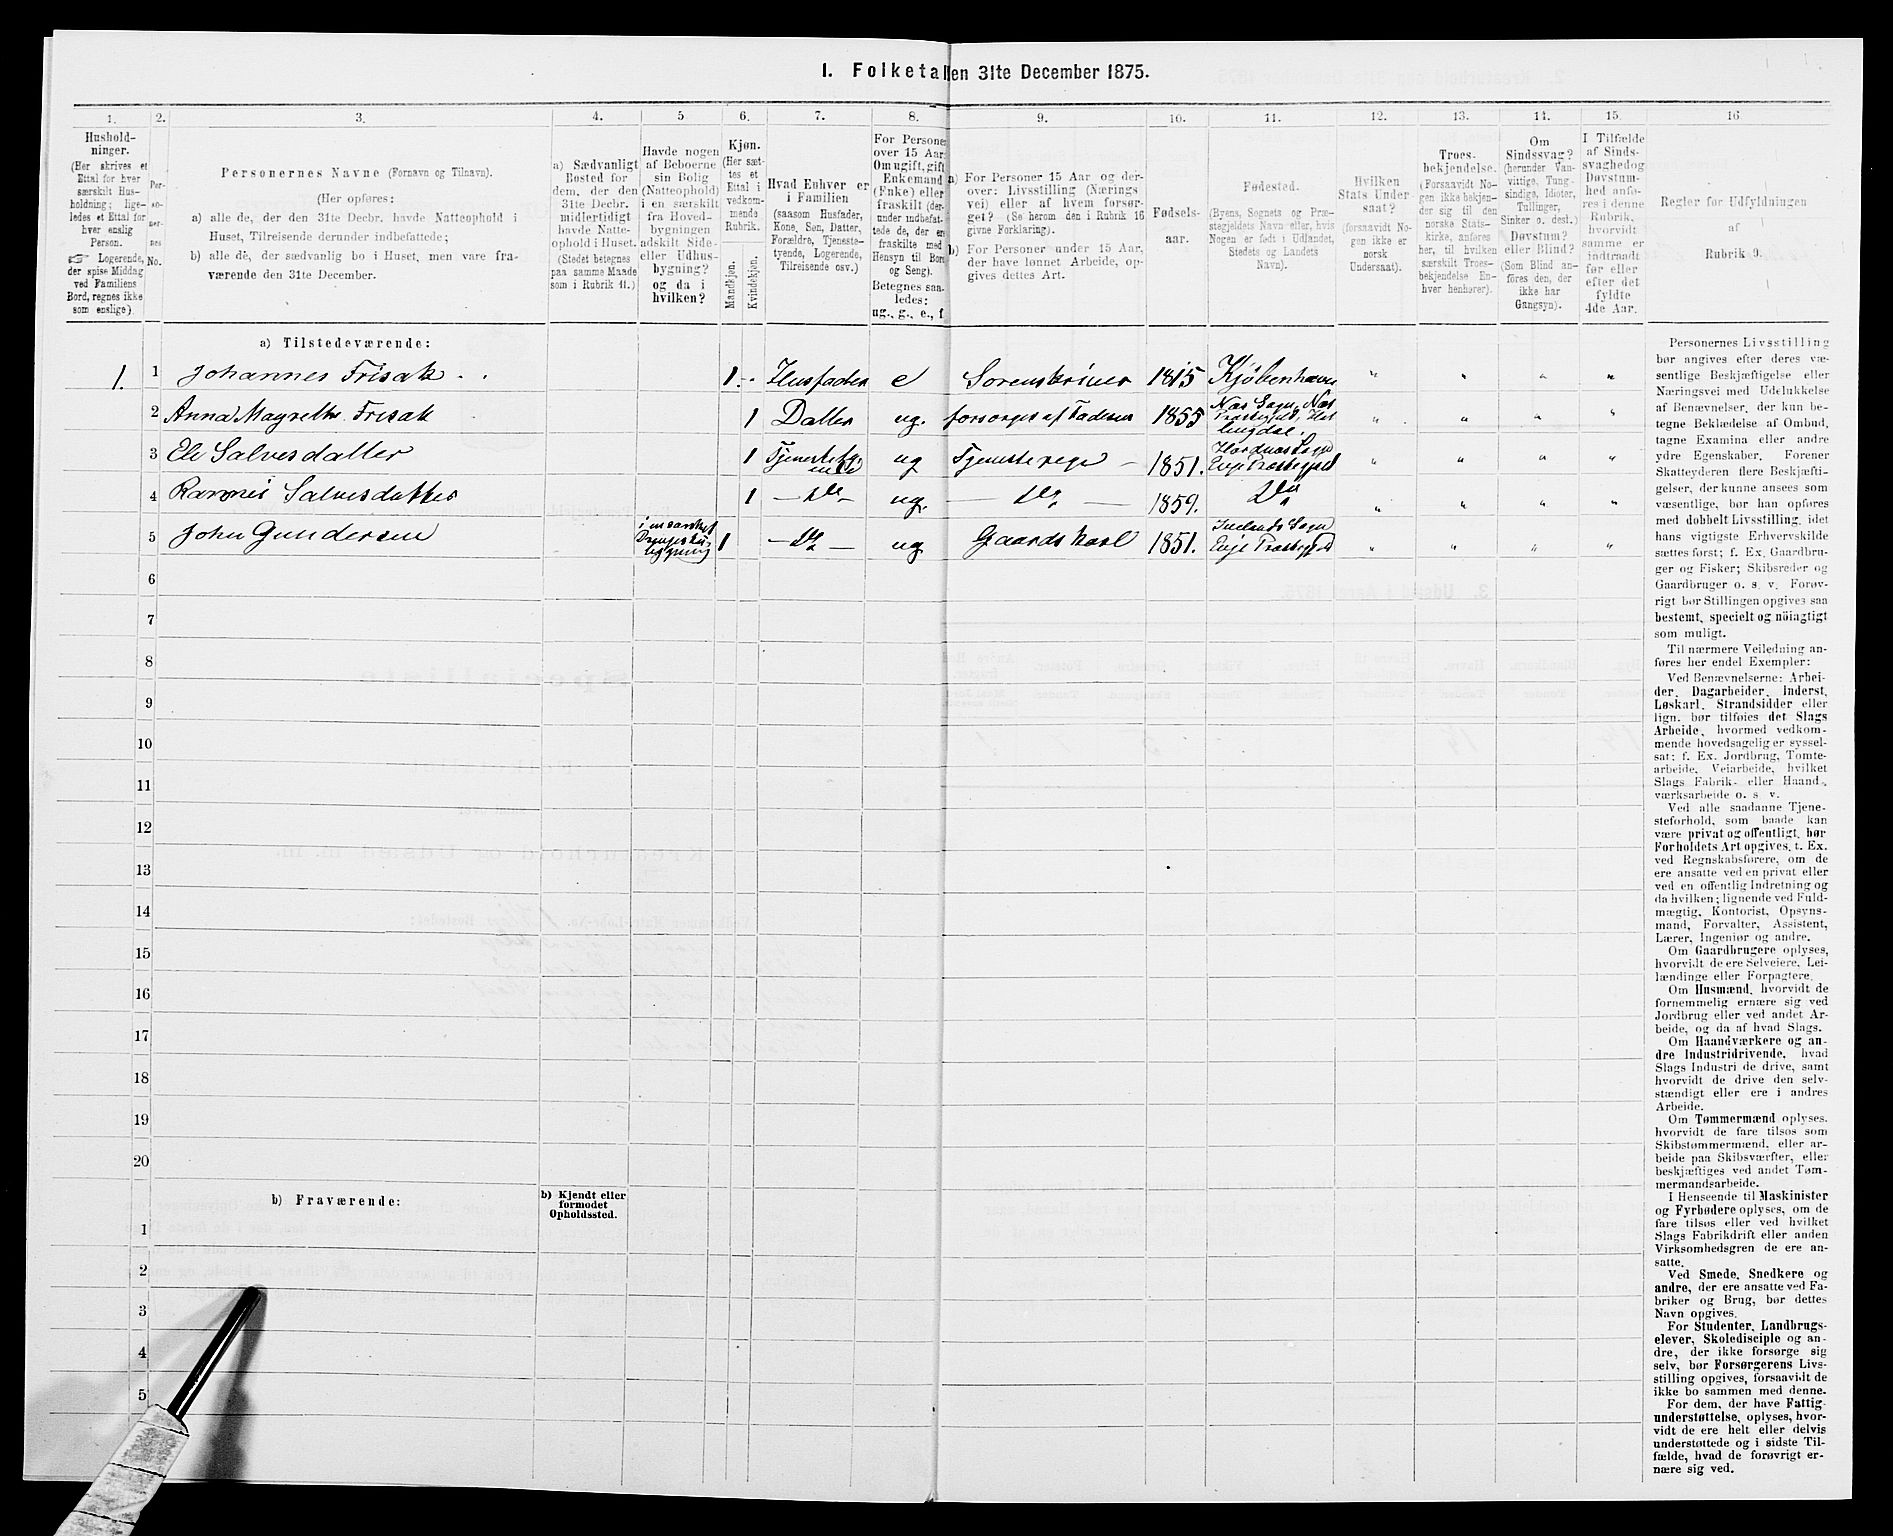 1. Folketal den 31te December 1875.
1. 2. 3. 4. 5 6. 7. 8. 9. 10. 11. 12. 13. 14. 15. 16
Hushold-
ninger.
(Her skrives et
Ettal for hver
særskilt Hus-
holdning; lige-
ledes et Ettal for
hver enslig
Person.
☞ Logerende,
der spise Middag
ved Familiens
Bord, regnes ikke
som enslige).
Per-
so-
ner-
nes
No.
Personernes Navne (Fornavn og Tilnavn).
(Her opføres:
a) alle de, der den 31te Decbr. havde Natteophold i
Huset, Tilreisende derunder indbefattede;
b) alle de, der sædvanlig bo i Huset, men vare fra-
værende den 31te December.
a) Sædvanligt
Bosted for
dem, der den
31te Decbr.
midlertidigt
havde Natte-
ophold i Huset.
(Stedet betegnes
paa samme Maade
som i Rubrik 11.)
Havde nogen
af Beboerne
sin Bolig
(Natteophold)
i en særskilt
fra Hoved-
bygningen
adskilt Side-
eller Udhus-
bygning?
og da i
hvilken?
Kjøn.
(Her sæt-
tes et
Ettal i
vedkom-
mende
Rubrik.
Mandkjøn.
Kvindekjøn.
Hvad Enhver er
i Familien
(saasom Husfader,
Kone, Søn, Datter,
Forældre, Tjeneste-
tyende, Logerende,
Tilreisende osv.)
For Personer
over 15 Aar:
Om ugift, gift,
Enkemand
(Enke) eller
fraskilt (der-
under indbefat-
tede de, der ere
fraskilte med
Hensyn til Bord
og Seng).
Betegnes saa-
ledes:
ug., g., e., f.
a) For Personer 15 Aar og der-
over: Livsstilling (Nærings
vei) eller af hvem forsør-
get? (Se herom den i Rubrik 16
givne Forklaring).
b) For Personer under 15 Aar,
der have lønnet Arbeide, op-
gives dettes Art.
Fødsels-
aar.
Fødested.
(Byens, Sognets og Præ-
stegjeldets Navn eller, hvis
Nogen er født i Udlandet,
Stedets og Landets
Navn).
Hvilken
Stats Under-
saat?
(forsaavidt No-
gen ikke er
norsk
Undersaat).
Troes-
bekjendelse.
(Forsaavidt No-
gen ikke bekjen-
der sig til den
norske Stats-
kirke, anføres
her, til hvilken
særskilt Troes-
bekjendelse En-
hver henhører).
Om
Sindssvag?
(herunder Van-
vittige, Tung-
sindige, Idioter,
Tullinger,
Sinker o. desl.)
Døvstum?
eller Blind?
(Som Blind an-
føres den, der
ikke har
Gangsyn).
I Tilfælde
af Sinds-
svaghed og
Døvstum-
hed anfø-
res i denne
Rubrik,
hvorvidt
samme er
indtraadt
før eller
efter det
fyldte
4de Aar.
Regler for Udfyldningen
af
Rubrik 9.
a) Tilstedeværende:
1. 1 Johannes Frisak 1 Husfader e Sorenskriver 1815 Kjøbenhavn " " " "
2 Anna Magrethe Frisak 1 Datter ug. forsørges af Faderen 1855 Næs Sogn, Næs
Præstegjeld, Hal
lingdal. " " " "
3 Eli Salvesdatter 1 Tjenestepige ug Tjenestepige 1851. Hordnæs Sogn
Evje Præstegjeld " " " "
4 Salvesdatter 1 — Do — ug. — Do — 1859. Do " " " "
5 John Gundersen i en særskilt
Drengestue
bygning 1 — Do — ug Gaardskarl 1851. Iveland Sogn
Evje Præstegjeld " " " "
6
7
8
9
10
11
12
13
14
15
16
17
18
19
20
b) Fraværende:
b) Kjendt eller
formodet
Opholdssted.
1
2
3
4
5
Personernes Livsstilling
bør angives efter deres væ-
sentlige Beskjæftigelse eller
Næringsvei med Udelukkelse
af Benævnelser, der kun be-
tegne Beklædelse af Ombud,
tagne Examina eller andre
ydre Egenskaber. Forener
Skatteyderen flere Beskjæfti-
gelser, der kunne ansees som
væsentlige, bør han opføres
med dobbelt Livsstilling, idet
hans vigtigste Erhvervskilde
sættes først; f. Ex. Gaardbru-
ger og Fisker; Skibsreder og
Gaardbruger o. s. v. Forøv-
rigt bør Stillingen opgives saa
bestemt, specielt og nöiagtigt
som muligt.
Til nærmere Veiledning an-
føres her endel Exempler:
Ved Benævnelserne: Arbei-
der, Dagarbeider, Inderst,
Løskarl, Strandsidder eller
lign. bør tilføies det Slags
Arbeide, hvormed vedkom-
mende hovedsagelig er syssel-
sat; f. Ex. Jordbrug, Tomte-
arbeide, Veiarbeide, hvilket
Slags Fabrik- eller Haand-
værksarbeide o. s. v.
Ved alle saadanne Tjene-
steforhold, som baade kan
være privat og offentligt, bør
Forholdets Art opgives, t. Ex.
ved Regnskabsførere, om de
ere ansatte ved en privat eller
ved en offentlig Indretning og
da hvilken; lignende ved Fuld-
mægtig, Kontorist, Opsyns-
mand, Forvalter, Assistent,
Lærer, Ingeniør og andre.
Om Gaardbrugere oplyses,
hvorvidt de ere Selveiere, Lei-
lændinge eller Forpagtere.
Om Husmænd, hvorvidt de
fornemmelig ernære sig ved
Jordbrug eller ved andet Ar-
beide, og da af hvad Slags.
Om Haandværkere og an-
dre Industridrivende, hvad
Slags Industri de drive, samt
hvorvidt de drive den selv-
stændigt eller ere i andres
Arbeide.
Om Tømmermænd oplyses,
hvorvidt de fare tilsøs som
Skibstømmermænd, eller ar-
beide paa Skibsværfter, eller
beskjæftiges ved andet Tøm-
mermandsarbeide.
I Henseende til Maskinister
og Fyrbødere oplyses, om de
fare tilsøs eller ved hvilket
Slags Fabrikdrift eller anden
Virksomhedsgren de ere an-
satte.
Ved Smede, Snedkere og
andre, der ere ansatte ved Fa-
briker og Brug, bør dettes
Navn opgives.
For Studenter, Landbrugs-
elever, Skoledisciple og an-
dre, der ikke forsørge sig
selv, bør Forsørgerens Livs-
stilling opgives, forsaavidt de
ikke bo sammen med denne.
For dem, der have Fattig-
understøttelse, oplyses, hvor-
vidt de ere helt eller delvis
understøttede og i sidste Til-
fælde, hvad de forøvrigt er-
nære sig ved.